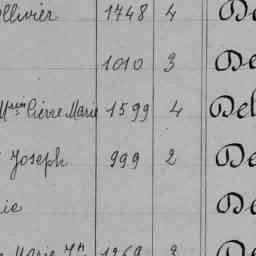 ollivier 1748 4 De
1010 3 De
Mrin Pierre Marie 1599 4 Del
Joseph 999 2 De
rie De
Marie Jn 1269 3 De